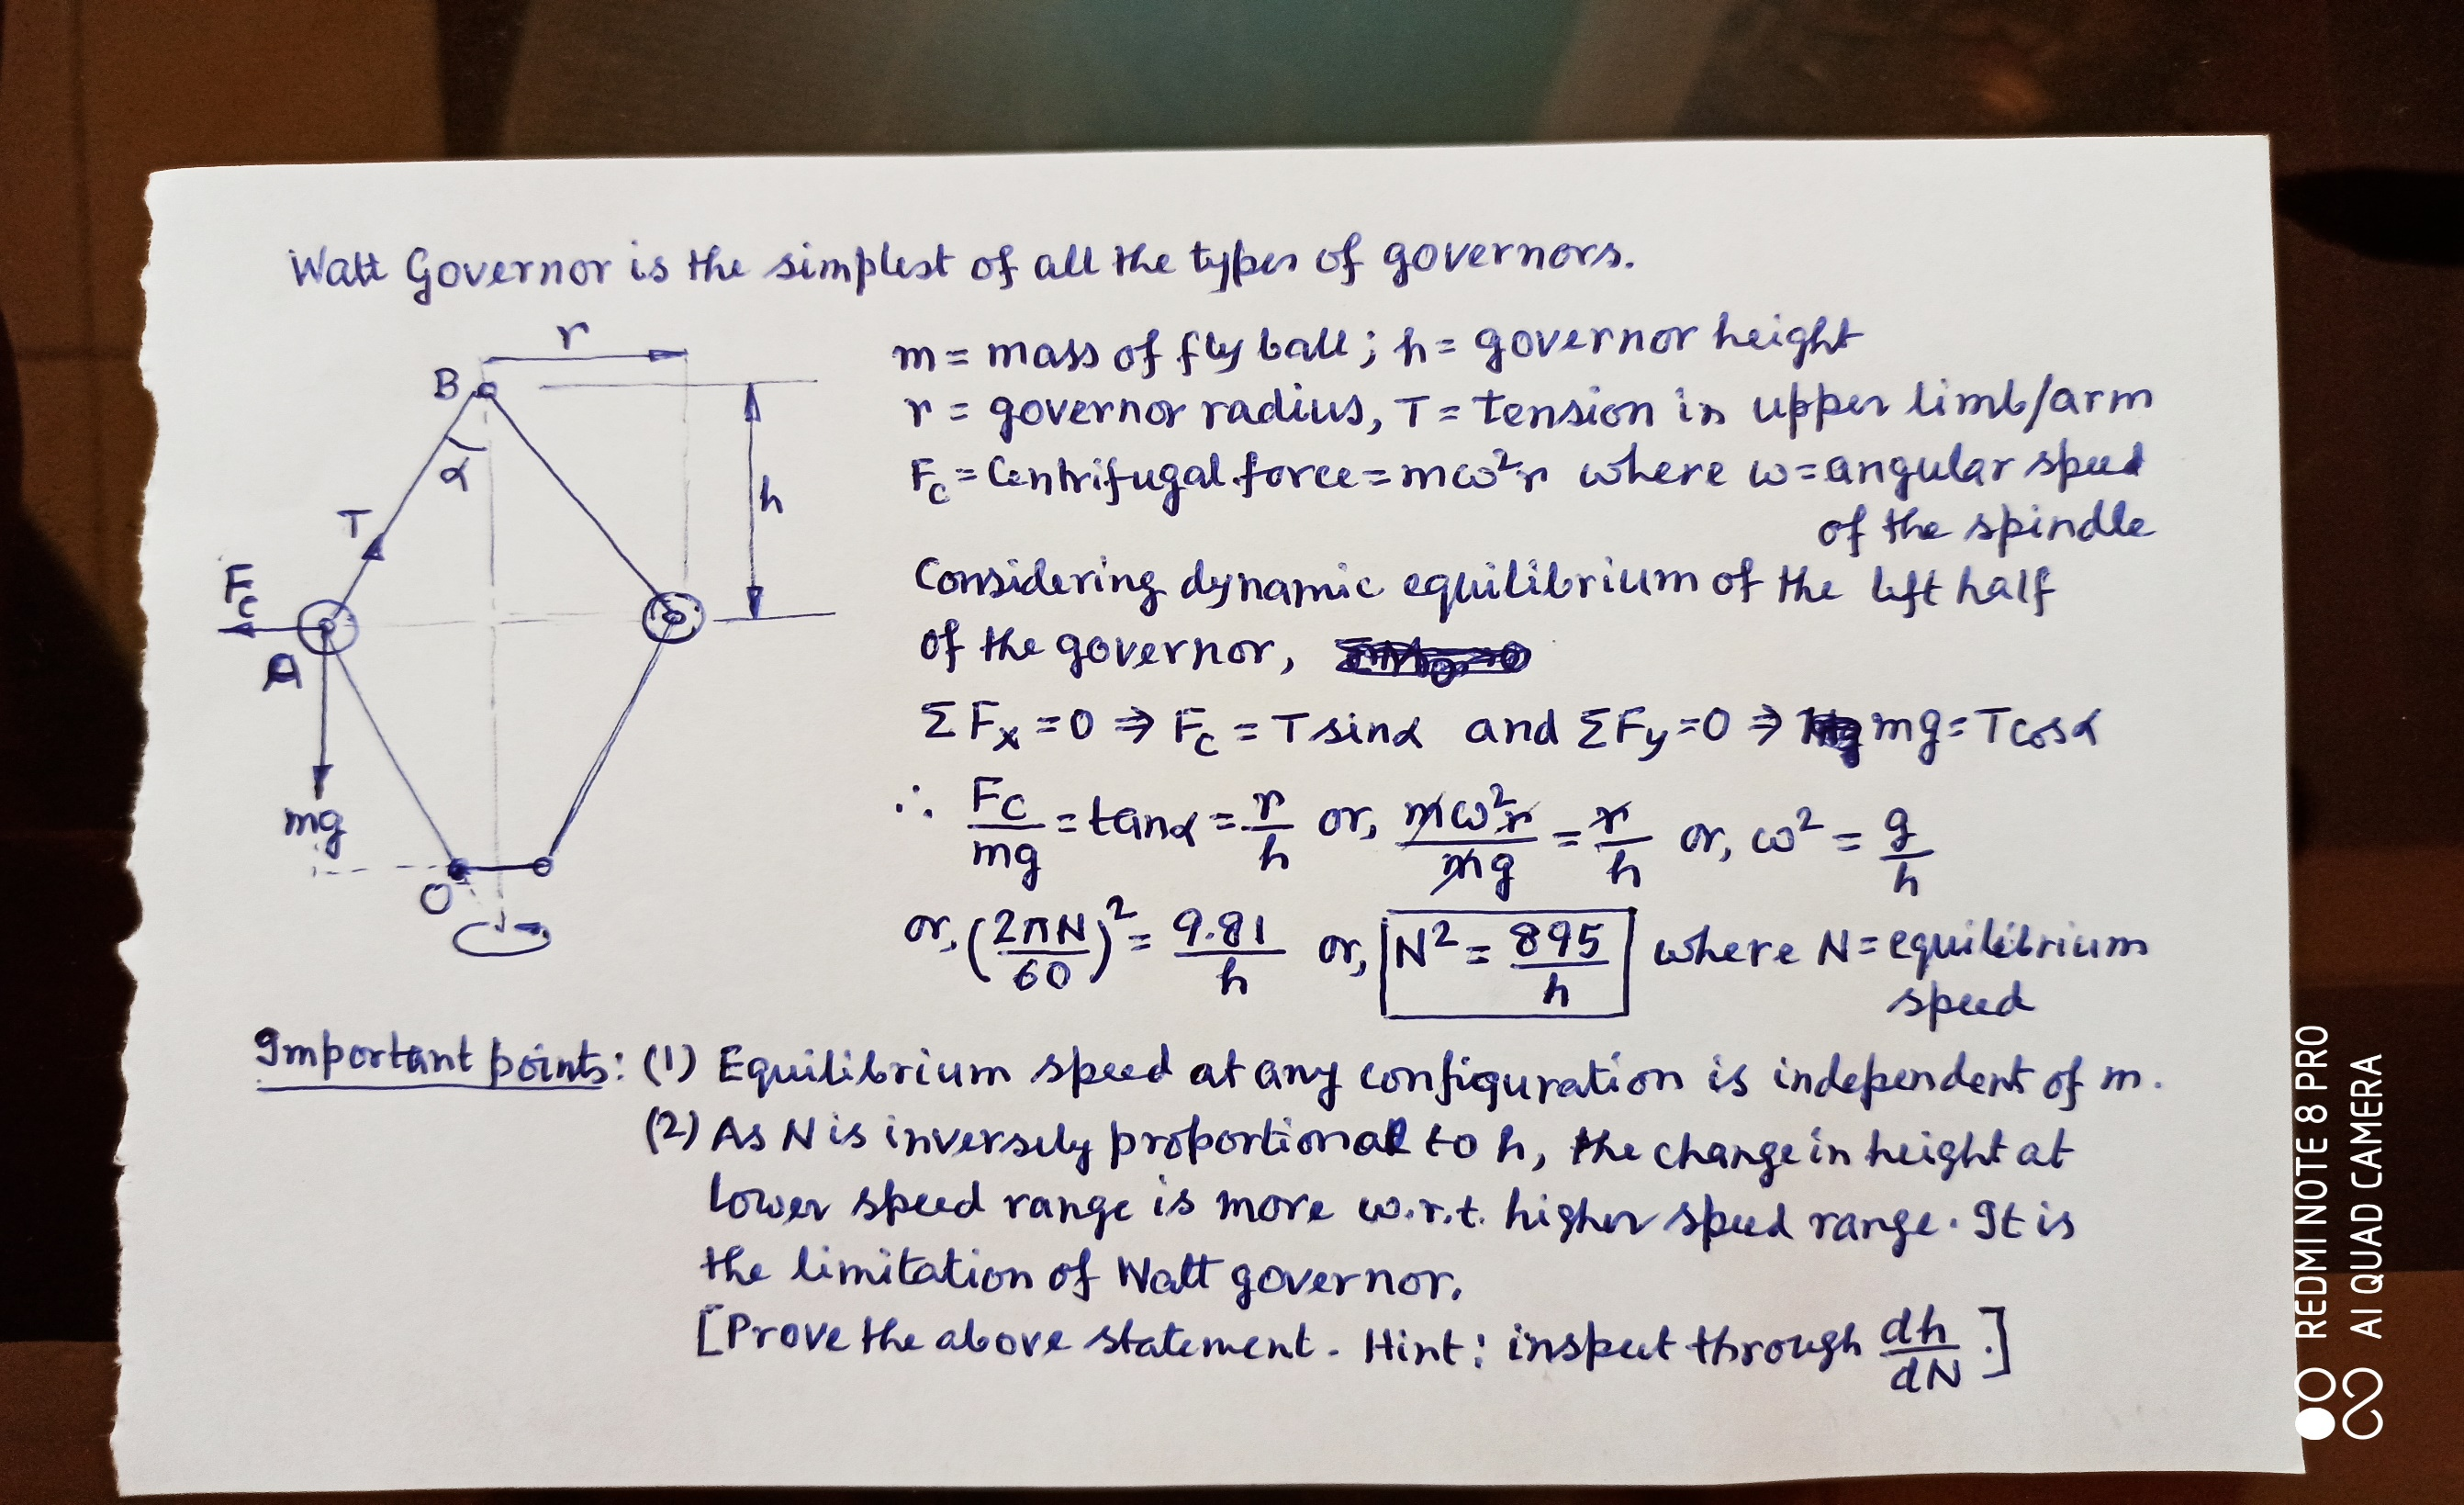 Watt Governor is the simplest of all the types of governors.
r
B
α
h
T
Fc
A
mg
O
m = mass of fly ball; h = governor height
r = governor radius, T = tension in upper limb/arm
Fc = Centrifugal force = mω²r where ω = angular speed
of the spindle
Considering dynamic equilibrium of the left half
of the governor,
ΣFx = 0 ⇒ Fc = T sinα and ΣFy = 0 ⇒ mg = T cosα
∴ Fc/mg = tanα = r/h or, mω²r/mg = r/h or, ω² = g/h
or, (2πN/60)² = 9.81/h or, N² = 895/h where N = equilibrium
speed
Important points: (1) Equilibrium speed at any configuration is independent of m.
(2) As N is inversely proportional to h, the change in height at
lower speed range is more w.r.t. higher speed range. It is
the limitation of Watt governor.
[Prove the above statement. Hint: inspect through dh/dN.]
REDMI NOTE 8 PRO
AI QUAD CAMERA